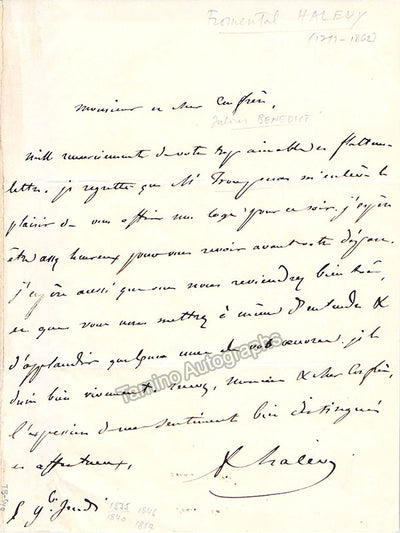 Fromental HALEVY
(1799-1862)
Monsieur et cher Confrère,
Julius BENEDICT
Mille remerciements de votre trop aimable et flatteuse
lettre. je regrette que Mr m'enlève le
plaisir de vous offrir une loge pour ce soir. j'espère
être assez heureux pour vous revoir avant votre départ.
j'espère aussi que vous nous reviendrez bientôt,
et que vous nous mettrez à même d'entendre &
d'applaudir quelques unes de vos œuvres. je le
désire bien vivement. recevez, Monsieur & cher Confrère,
l'expression de mes sentiments bien distingués
et affectueux,
F Halévy
9bre Jeudi
1835 1846
1840 1852
Tamino Autographs